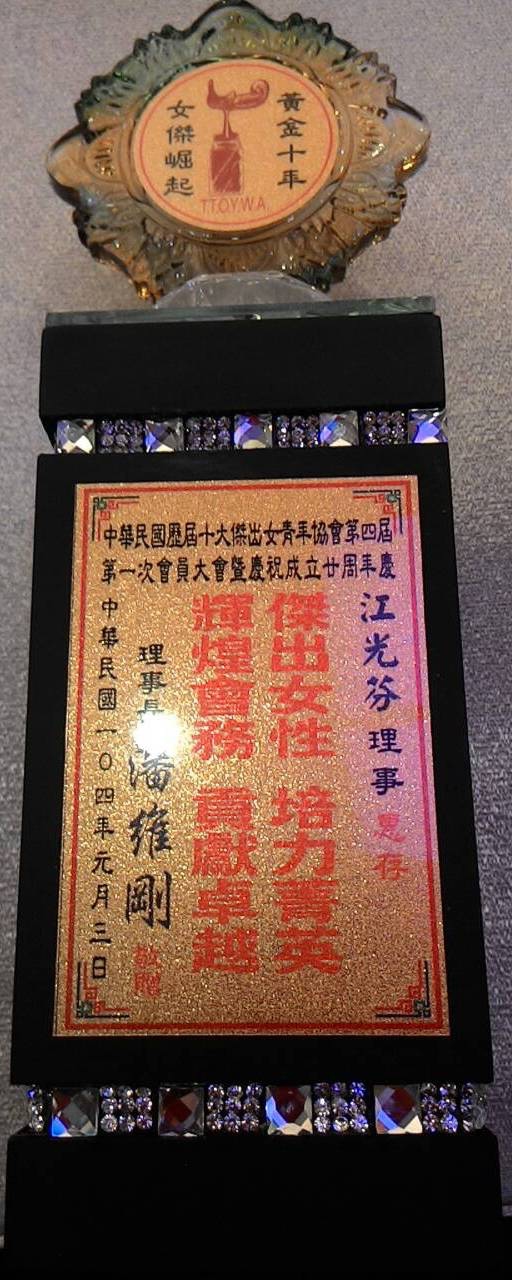 黃金十年
女傑崛起
T.T.O.Y.W.A.
中華民國歷屆十大傑出女青年協會第四屆
第一次會員大會暨慶祝成立廿周年慶
江光芬 理事 惠存
傑出女性 培力菁英
輝煌會務 貢獻卓越
理事長 潘維剛 敬贈
中華民國一〇四年元月三日